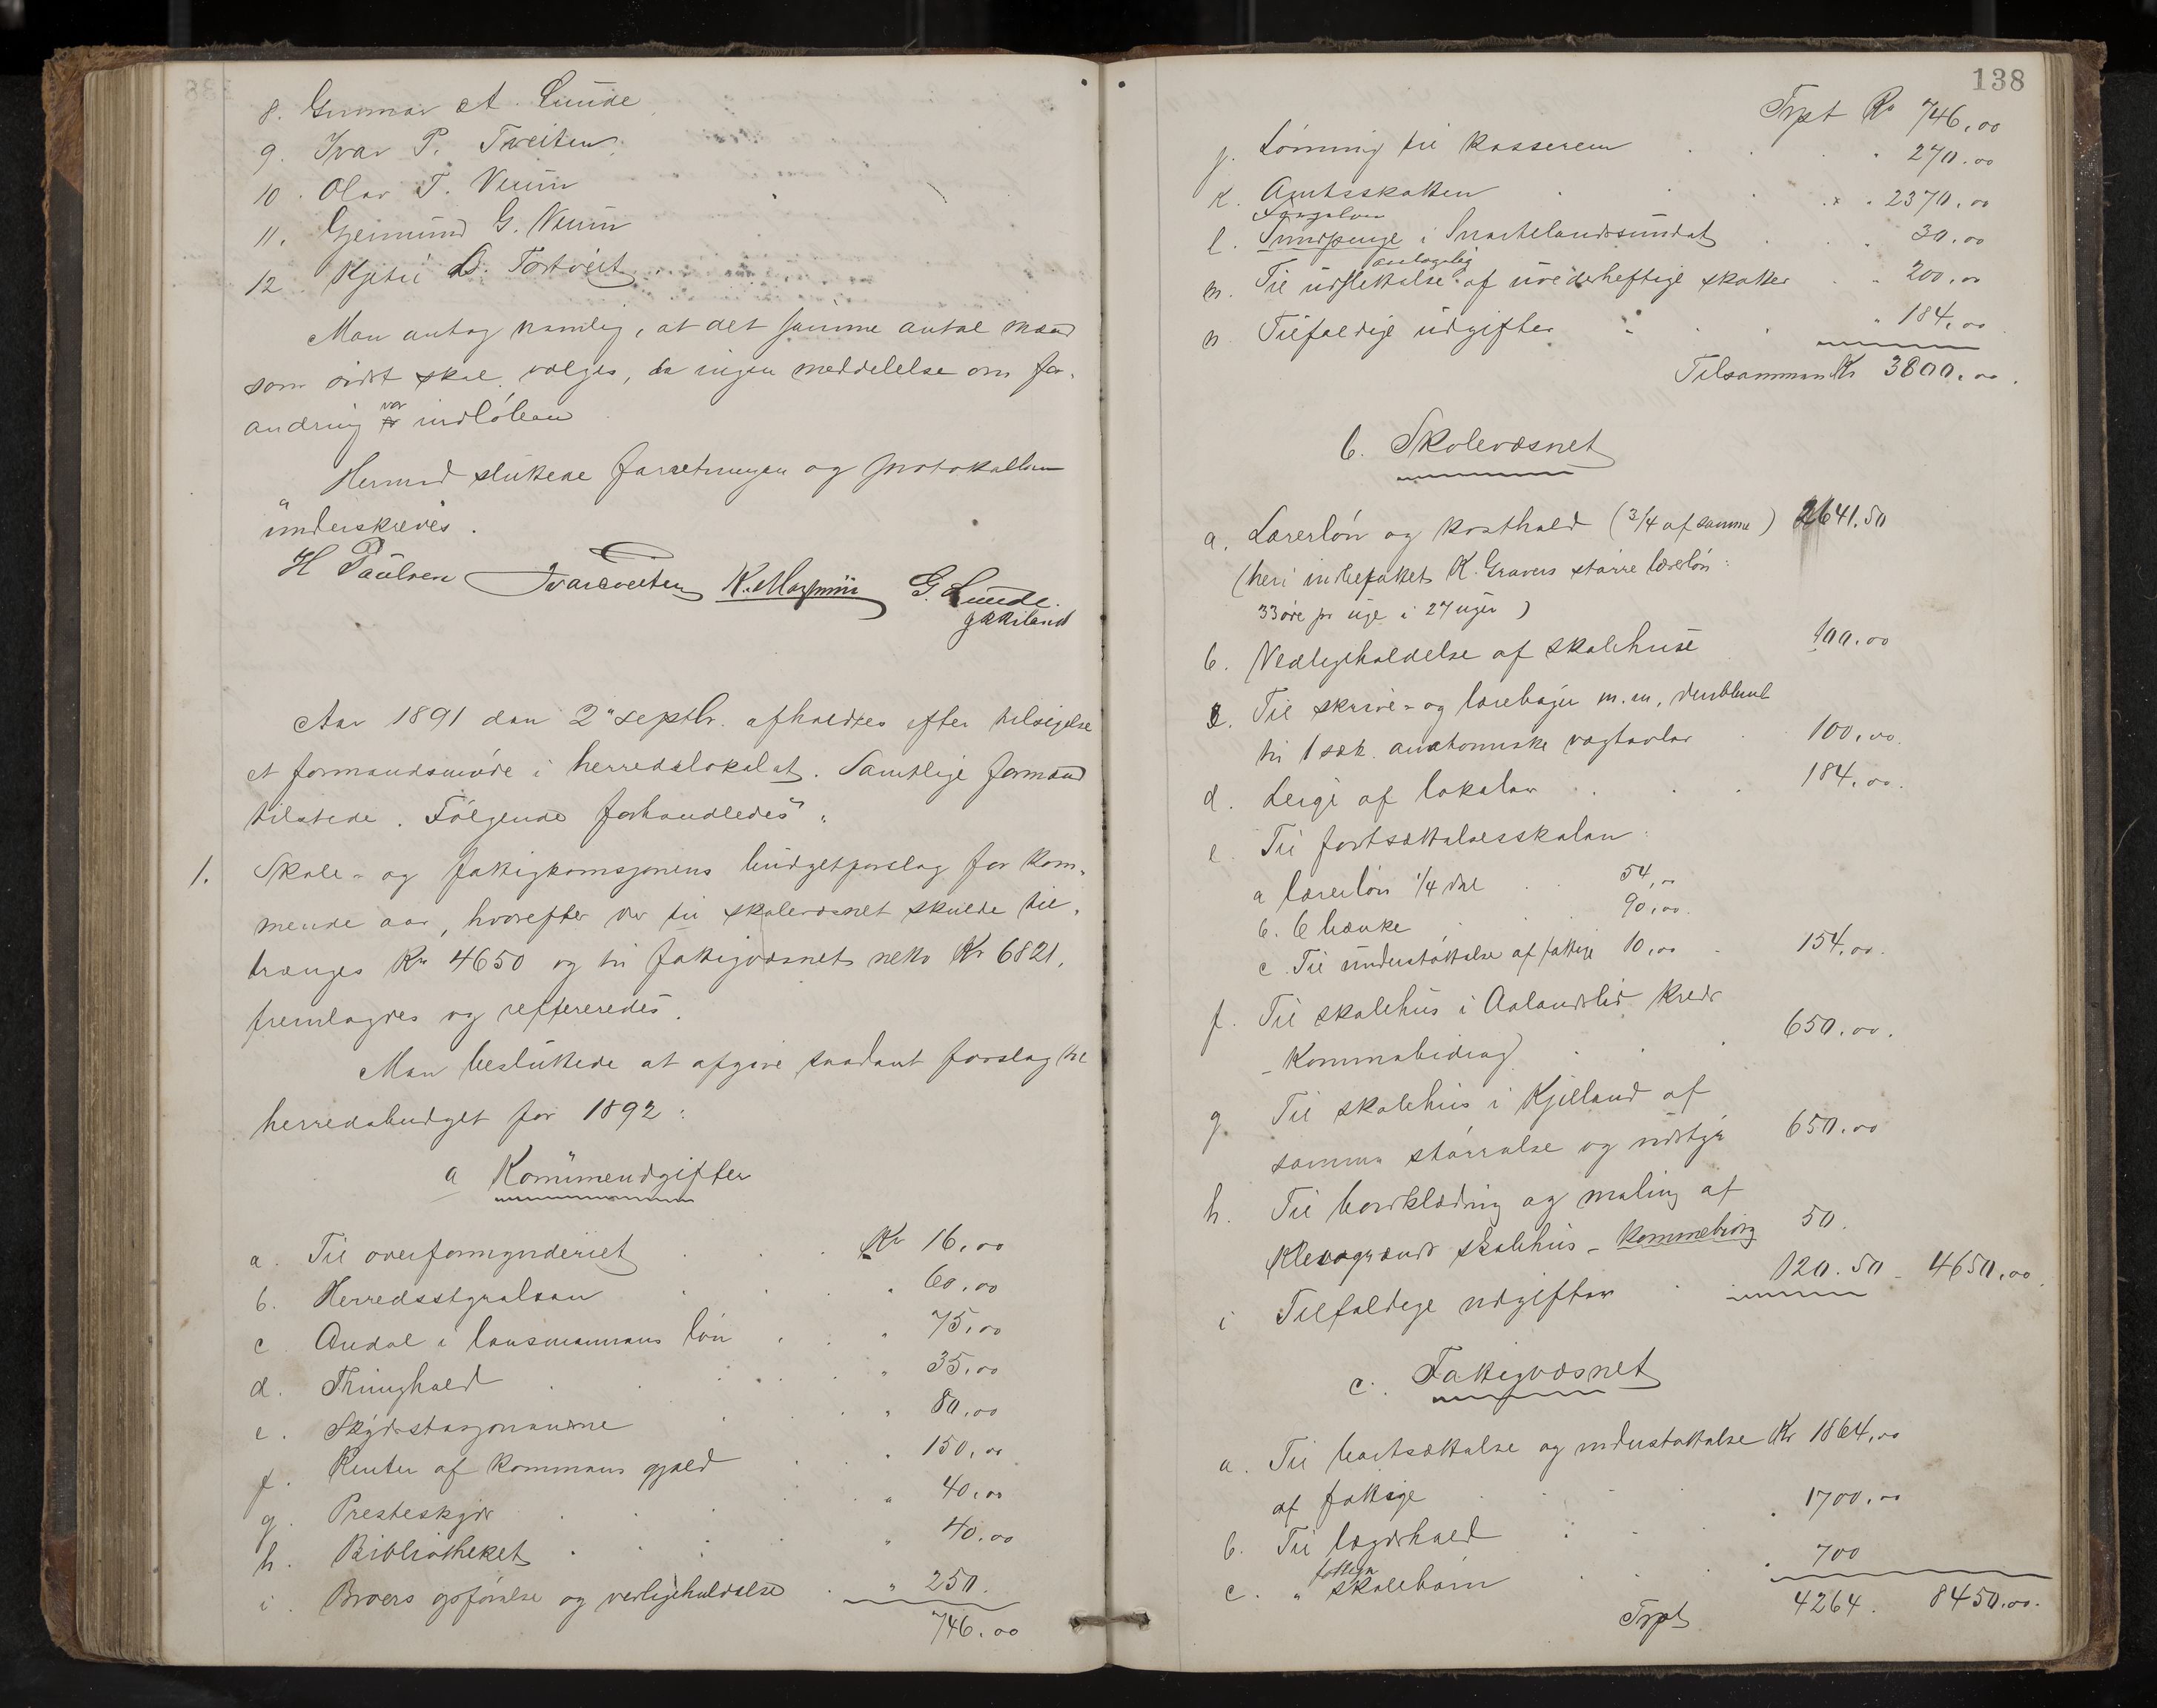 8. Gunnar A. Lunde
9. Ivar P. Tveiten
10. Olav T. Veum
11. Gjermund G. Veum
12. Kjetil D. Tortveit
Man antog nemlig, at det samme antal mænd
som sidst skal vælges, da ingen meddelelse om for-
andring var indløben
Hermed sluttede forretningen og protokollen
underskreves.
H Paulsen Ivar Tveiten G. Lunde.
Aar 1891 den 2 septbr. afholdtes efter tilsigelse
et formandsmøde i herredslokalet. Samtlige formænd
tilstede. Følgende forhandledes:
1. Skole- og fattigkomsjonens budgetforslag for kom-
mende aar, hvorefter der til skolevæsnet skulde til-
trænges Kr 4650 og til fattigvæsnet netto Kr 6821,
fremlagdes og reffereredes.
Man besluttede at afgive saadant forslag til
herredsbudget for 1892:
a Kommuneudgifter
a. Til overformynderiet Kr 16,00
b. Herredsstyrelsen " 60,00
c. Andel i lensmannens løn " 75,00
d. Thinghold " 35,00
e. Skydsstasjonerne " 80,00
f. Renter af kommuns gjæld " 150,00
g. Presteskyds " 40,00
h. Bibliotheket " 40,00
i. Broers opførelse og vedligeholdelse " 250.
746,00
138
Trpt Kr 746,00
j. Lønning til kasseren " 270,00
k. Amtsskatten " 2370,00
l. i Snartelandssundet " 30,00
m. Til udslettelse af uvederheftige skatter " 200,00
n. Tilfældige udgifter " 184,00
Tilsammen Kr 3800,00.
b. Skolevæsnet
a. Lærerløn og kosthold (3/4 af samme) 2641.50
(heri indbefattet K. Gravers større lærerløn:
33 øre pr uge i 27 uger)
b. Vedligeholdelse af skolehuse 100,00
c. Til skrive- og lærebøger m.m., deriblandt
til 1 sæt anatomiske vægtavler 100,00.
d. Leige af lokaler 184,00.
e. Til fortsættelsesskolen:
a lærerløn 1/4 del 54,00
b. 6 bænke 90,00.
c. Til understøttelse af fattige 10,00 154,00.
f. Til skolehus i Aalandslid kreds
- Kommunebidrag 650.00.
g. Til skolehus i Kjilland af
samme størrelse og udstyr 650.00
h. Til bordklædning og maling af
skolehus - 50.
i Tilfældige udgifter 120.50 4650,00.
c. Fattigvæsnet
a. Til bortsættelse og understøttelse Kr 1864,00
af fattige
b. Til lægdshold " 1700,00
c. " fattige skolebørn " 700
Trpt 4264. 8450.00.